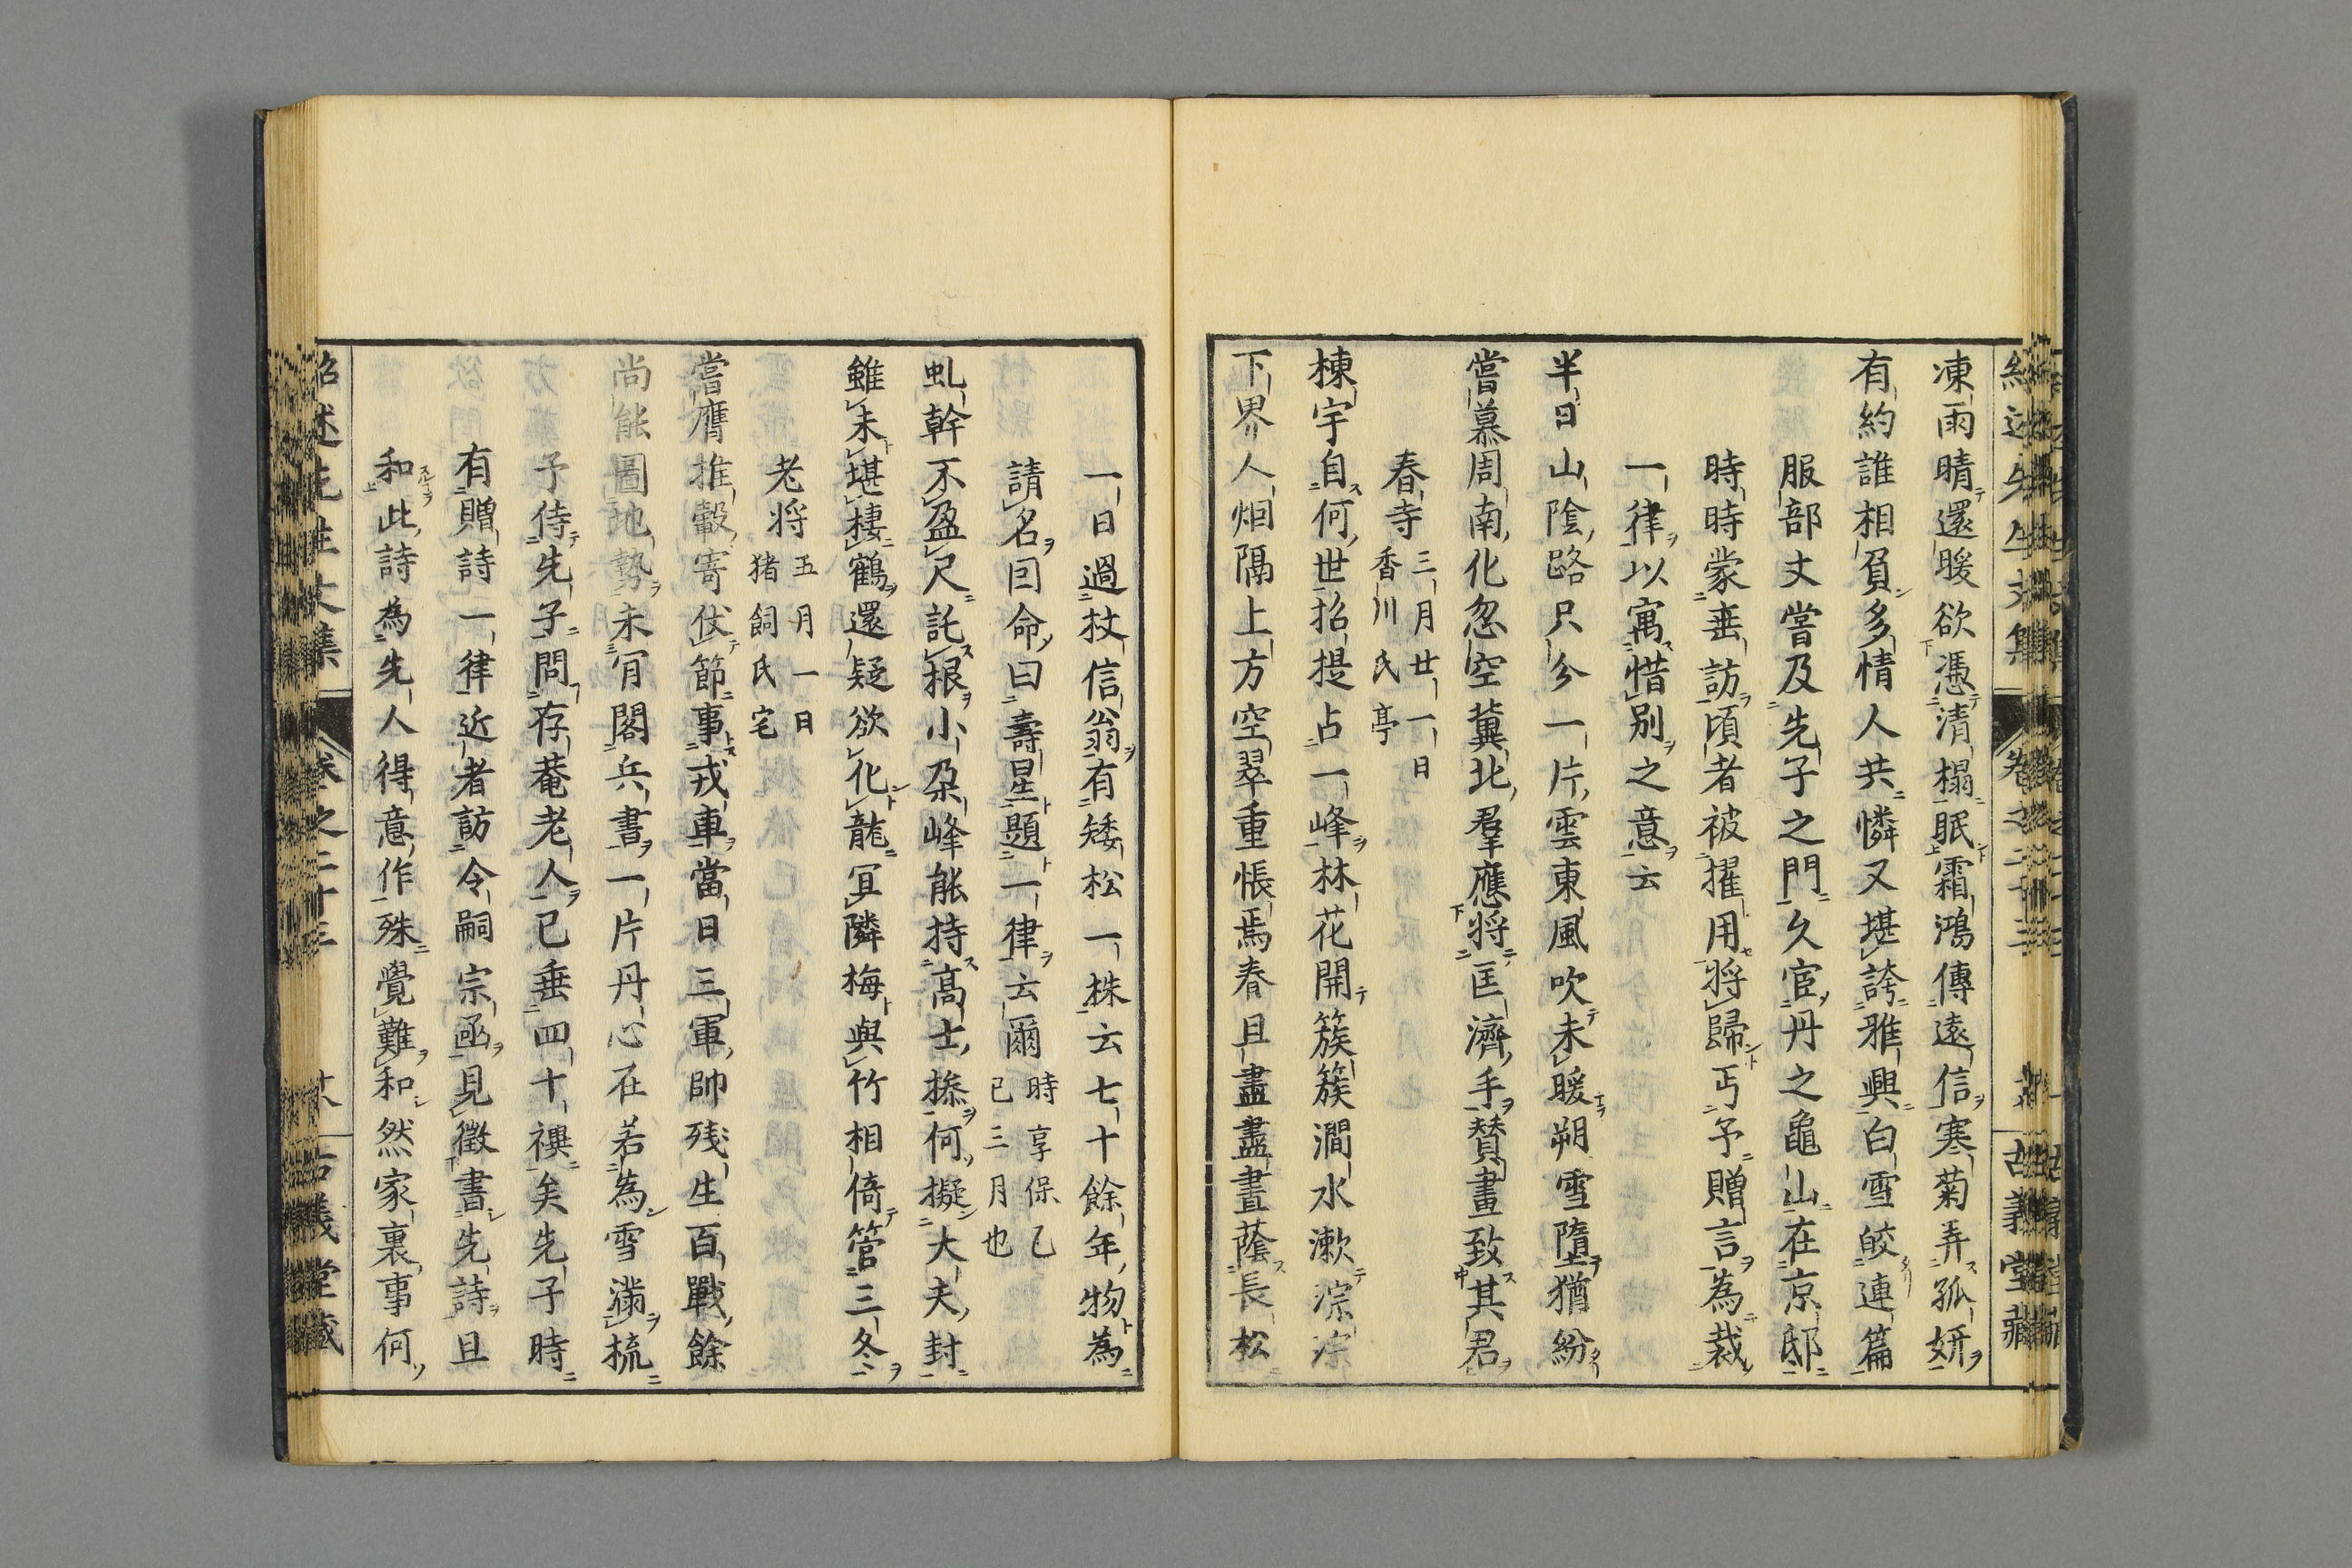 凍雨晴還暖欲憑清榻眠霜鴻傳遠信寒菊弄孤妍
有約誰相負多情人共憐又堪誇雅興白雪皎連篇
服部丈嘗及先子之門久宦丹之龜山在京邸
時時蒙垂訪頃者被擢用將歸丐予贈言為裁
一律以寓惜別之意云
半日山陰路只分一片雲東風吹未暖朔雪墮猶紛
嘗慕周南化忽空冀北羣應將匡濟手賛畫致其君
春寺
三月廿一日
香川氏亭
棟宇自何世招提占一峰林花開簇簇澗水漱淙淙
下界人烟隔上方空翠重悵焉春且盡盡晝蔭長松
一日過杖信翁有矮松一株云七十餘年物為
請名因命曰壽星題一律云爾
時享保乙
巳三月也
虬幹不盈尺託根小朶峰能持高士操何擬大夫封
雖未堪棲鶴還疑欲化龍冝隣梅與竹相倚管三冬
老将
五月一日
猪飼氏宅
嘗膺推轂寄仗節事戎車當日三軍帥残生百戰餘
尚能圖地勢未肎閣兵書一片丹心在若為雪滿梳
予侍先子問存菴老人已垂四十禩矣先子時
有贈詩一律近者訪令嗣宗函見徵書先詩且
和此詩為先人得意作殊覺難和然家裏事何
紹述先生文集
卷之二十三
古義堂藏